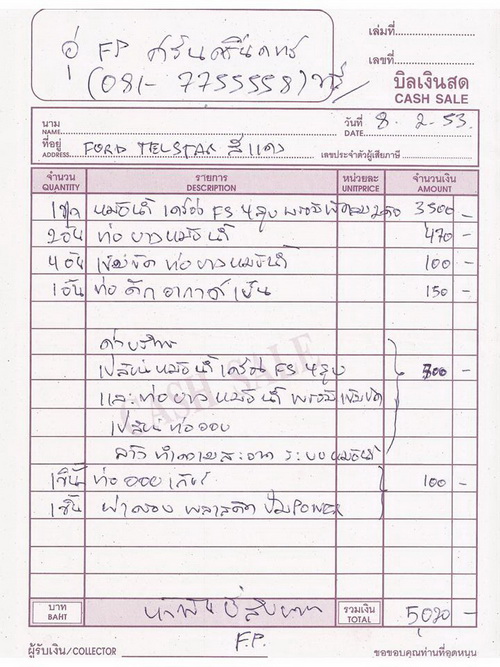 อู่ FP ศรีนครินทร์
(081-7755558)
เล่มที่
เลขที่
บิลเงินสด
CASH SALE
นาม
NAME
วันที่ 8. 2 - 53.
DATE
ที่อยู่ FORD TELSTAR สีแดง
ADDRESS
เลขประจำตัวผู้เสียภาษี
จำนวน รายการ หน่วยละ จำนวนเงิน
QUANTITY DESCRIPTION UNITPRICE AMOUNT
1ชุด หม้อน้ำ เครื่อง FS 4 สูบ พร้อมพัดลม 2 ตัว 3500 -
2 อัน ท่อยางหม้อน้ำ 470 -
4 อัน เข็มขัด ท่อยางหม้อน้ำ 100 -
1 อัน ท่อ ดัก อากาศ เย็น 150 -
ค่าบริการ
เปลี่ยนหม้อน้ำ เครื่อง FS 4 สูบ 700 -
และท่อยางหม้อน้ำ พร้อมเข็มขัด
เปลี่ยน ท่อออย
ล้าง ทำความสะอาด ระบบหม้อน้ำ
1ชิ้น ท่อออยเกียร์ 100 -
1ชิ้น ฝาครอบ พลาสติก ปั๊มPOWER
CASH SALE
บาท
BAHT
ห้าพันยี่สิบบาท
รวมเงิน
TOTAL
5020 -
ผู้รับเงิน/COLLECTOR F.P.
ขอขอบคุณท่านที่อุดหนุน